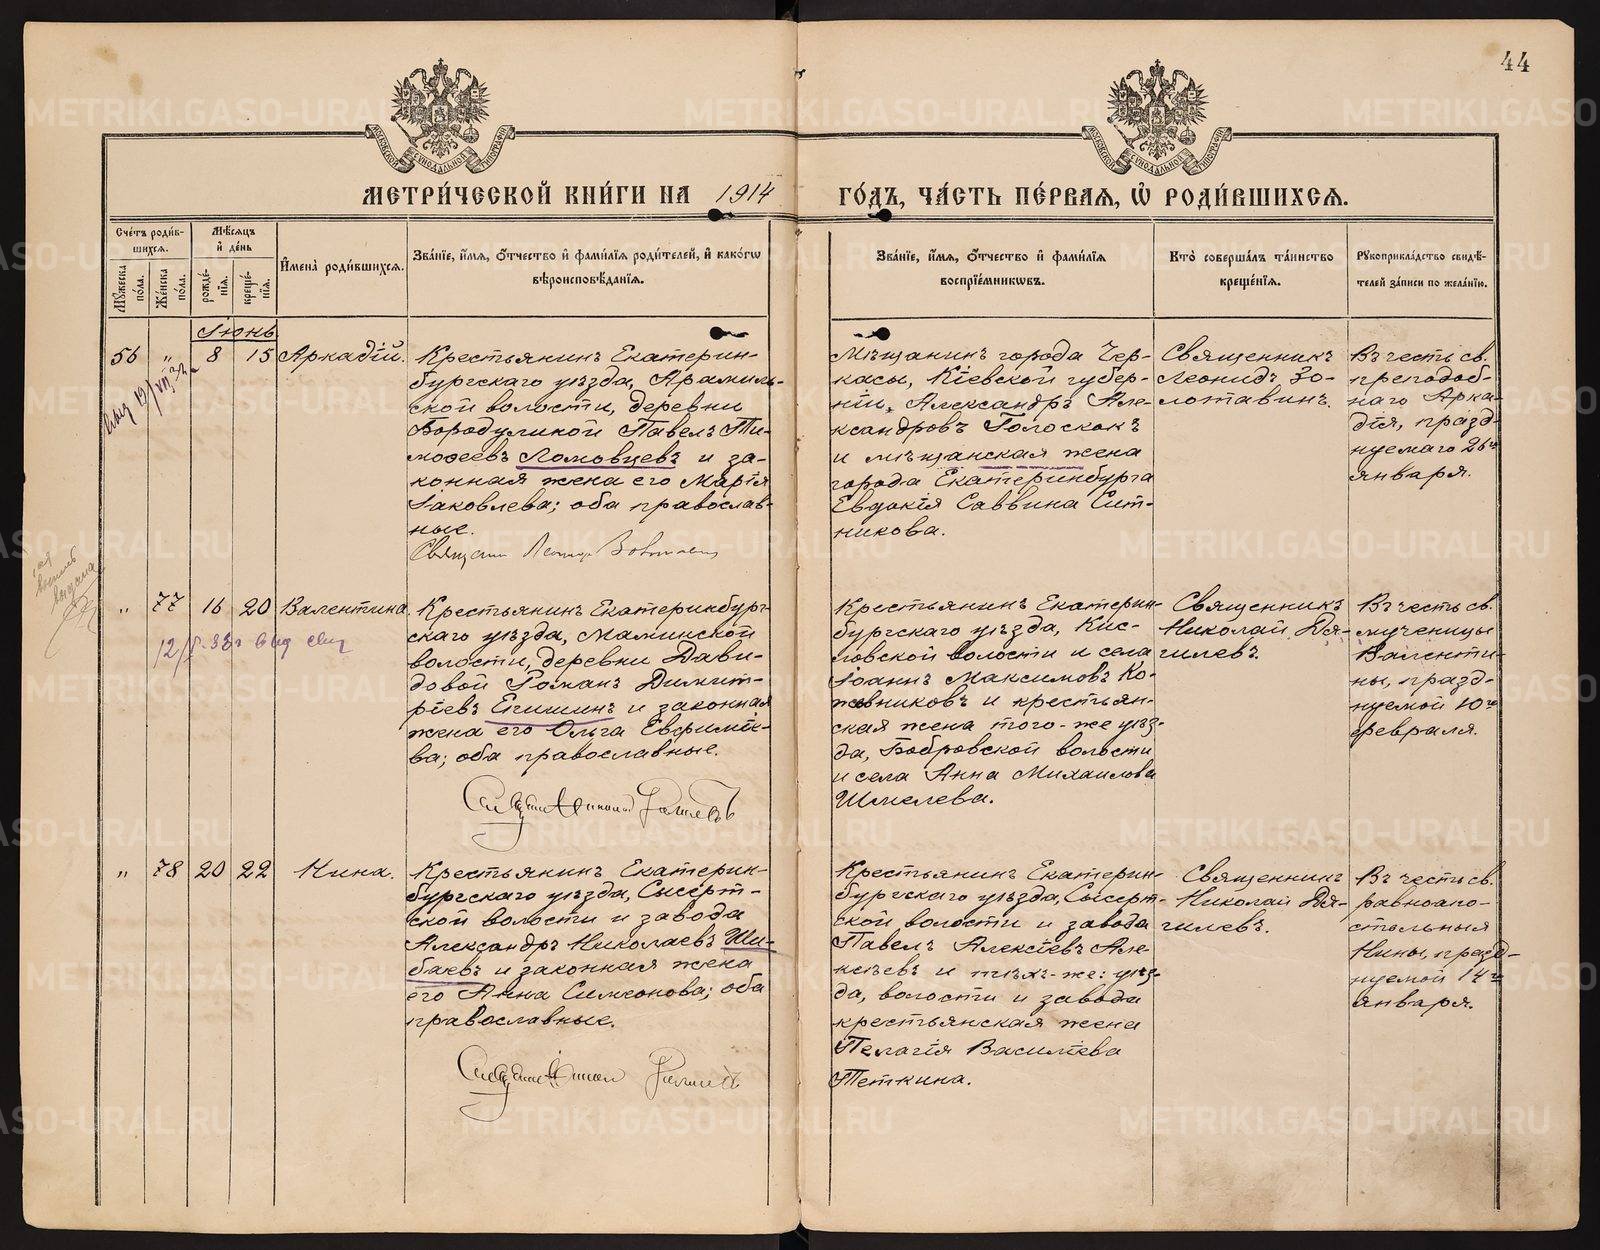 44
МЕТРИ́ЧЕСКОЙ КНИ́ГИ НА 1914 ГО́ДЪ, ЧА́СТЬ ПЕ́РВАЯ, Ѡ РОДИ́ВШИХСЯ.
Сче́тъ роди́в-
шихся.
Мꙋ́жеска
по́ла.
Же́нска
по́ла.
Мѣ́сяцъ
и де́нь
рожде́-
нїя.
креще́-
нїя.
И҆мена̀ роди́вшихся.
Зва́нїе, и҆́мя, ѻ҆́тчество и҆ фами́лїя роди́телей, и҆ како́гѡ
вѣроисповѣ́данїя.
Зва́нїе, и҆́мя, ѻ҆́тчество и҆ фами́лїя
воспрїе́мникѡвъ.
Кто̀ соверша́лъ та́инство
креще́нїя.
Рꙋкоприкла́дство свидѣ́-
телей за́писи по жела́нїю.
Іюнь
56 " 8 15 Аркадій.
Крестьянинъ Екатерин-
бургскаго уѣзда, Арамиль-
ской волости, деревни
Бородулиной Павелъ Ти-
моѳеевъ Ломовцевъ и за-
конная жена его Марія
Іаковлева; оба православ-
ные.
Мѣщанинъ города Чер-
касы, Кіевской губер-
ніи, Александръ Але-
ксандровъ Голоскокъ
и мѣщанская жена
города Екатеринбурга
Евдокія Саввина Сит-
никова.
Священникъ
Леонидъ Зо-
лотавинъ.
Въ честь св.
преподоб-
наго Арка-
дія, празд-
нуемаго 26го
января.
" 77 16 20 Валентина.
Крестьянинъ Екатеринбург-
скаго уѣзда, Маминской
волости, деревни Дави-
довой Романъ Димит-
ріевъ Егишинъ и законная
жена его Ольга Евѳиміе-
ва; оба православные.
Крестьянинъ Екатерин-
бургскаго уѣзда, Кис-
ловской волости и села
Іоаннъ Максимовъ Ко-
жевниковъ и крестьян-
ская жена того-же уѣз-
да, Бобровской волости
и села Анна Михаилова
Шмелева.
Священникъ
Николай Дя-
гилевъ.
Въ честь св.
мученицы
Валенти-
ны, празд-
нуемой 10го
февраля.
" 78 20 22 Нина.
Крестьянинъ Екатерин-
бургскаго уѣзда, Сысерт-
ской волости и завода
Александръ Николаевъ Ши-
баевъ и законная жена
его Анна Симеонова; оба
православные.
Крестьянинъ Екатерин-
бургскаго уѣзда, Сысерт-
ской волости и завода
Павелъ Алексіевъ Але-
ксѣевъ и тѣхъ-же: уѣз-
да, волости и завода
крестьянская жена
Пелагія Василіева
Теткина.
Священникъ
Николай Дя-
гилевъ.
Въ честь св.
равноапо-
стольныя
Нины, празд-
нуемой 14го
января.